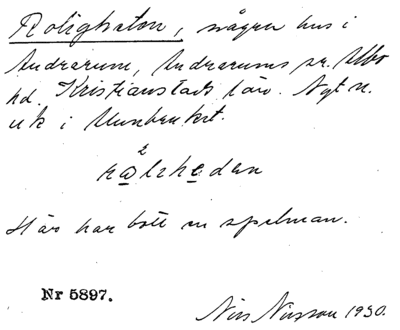 Roligheten, några hus i
Andrarum, Andrarums sn. Albo
hd. Kristianstads län. Nytt n.
uk i
2
Här har bott en spelman.
Nr 5897.
Nils Nilsson 1930.